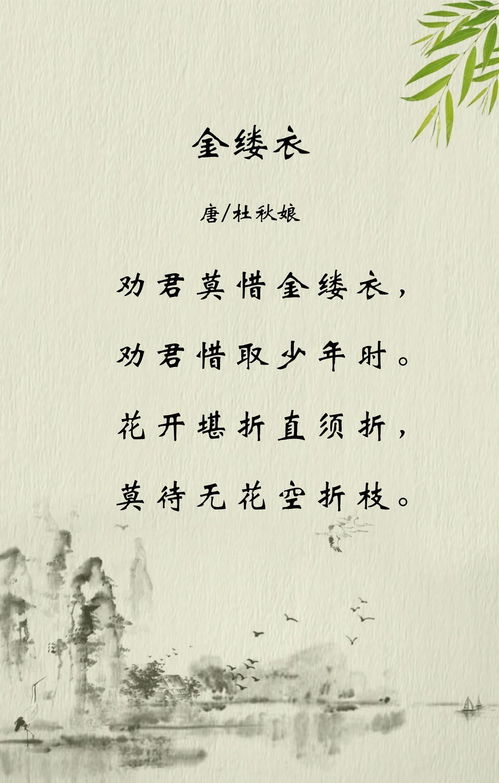 金缕衣
唐/杜秋娘
劝君莫惜金缕衣，
劝君惜取少年时。
花开堪折直须折，
莫待无花空折枝。